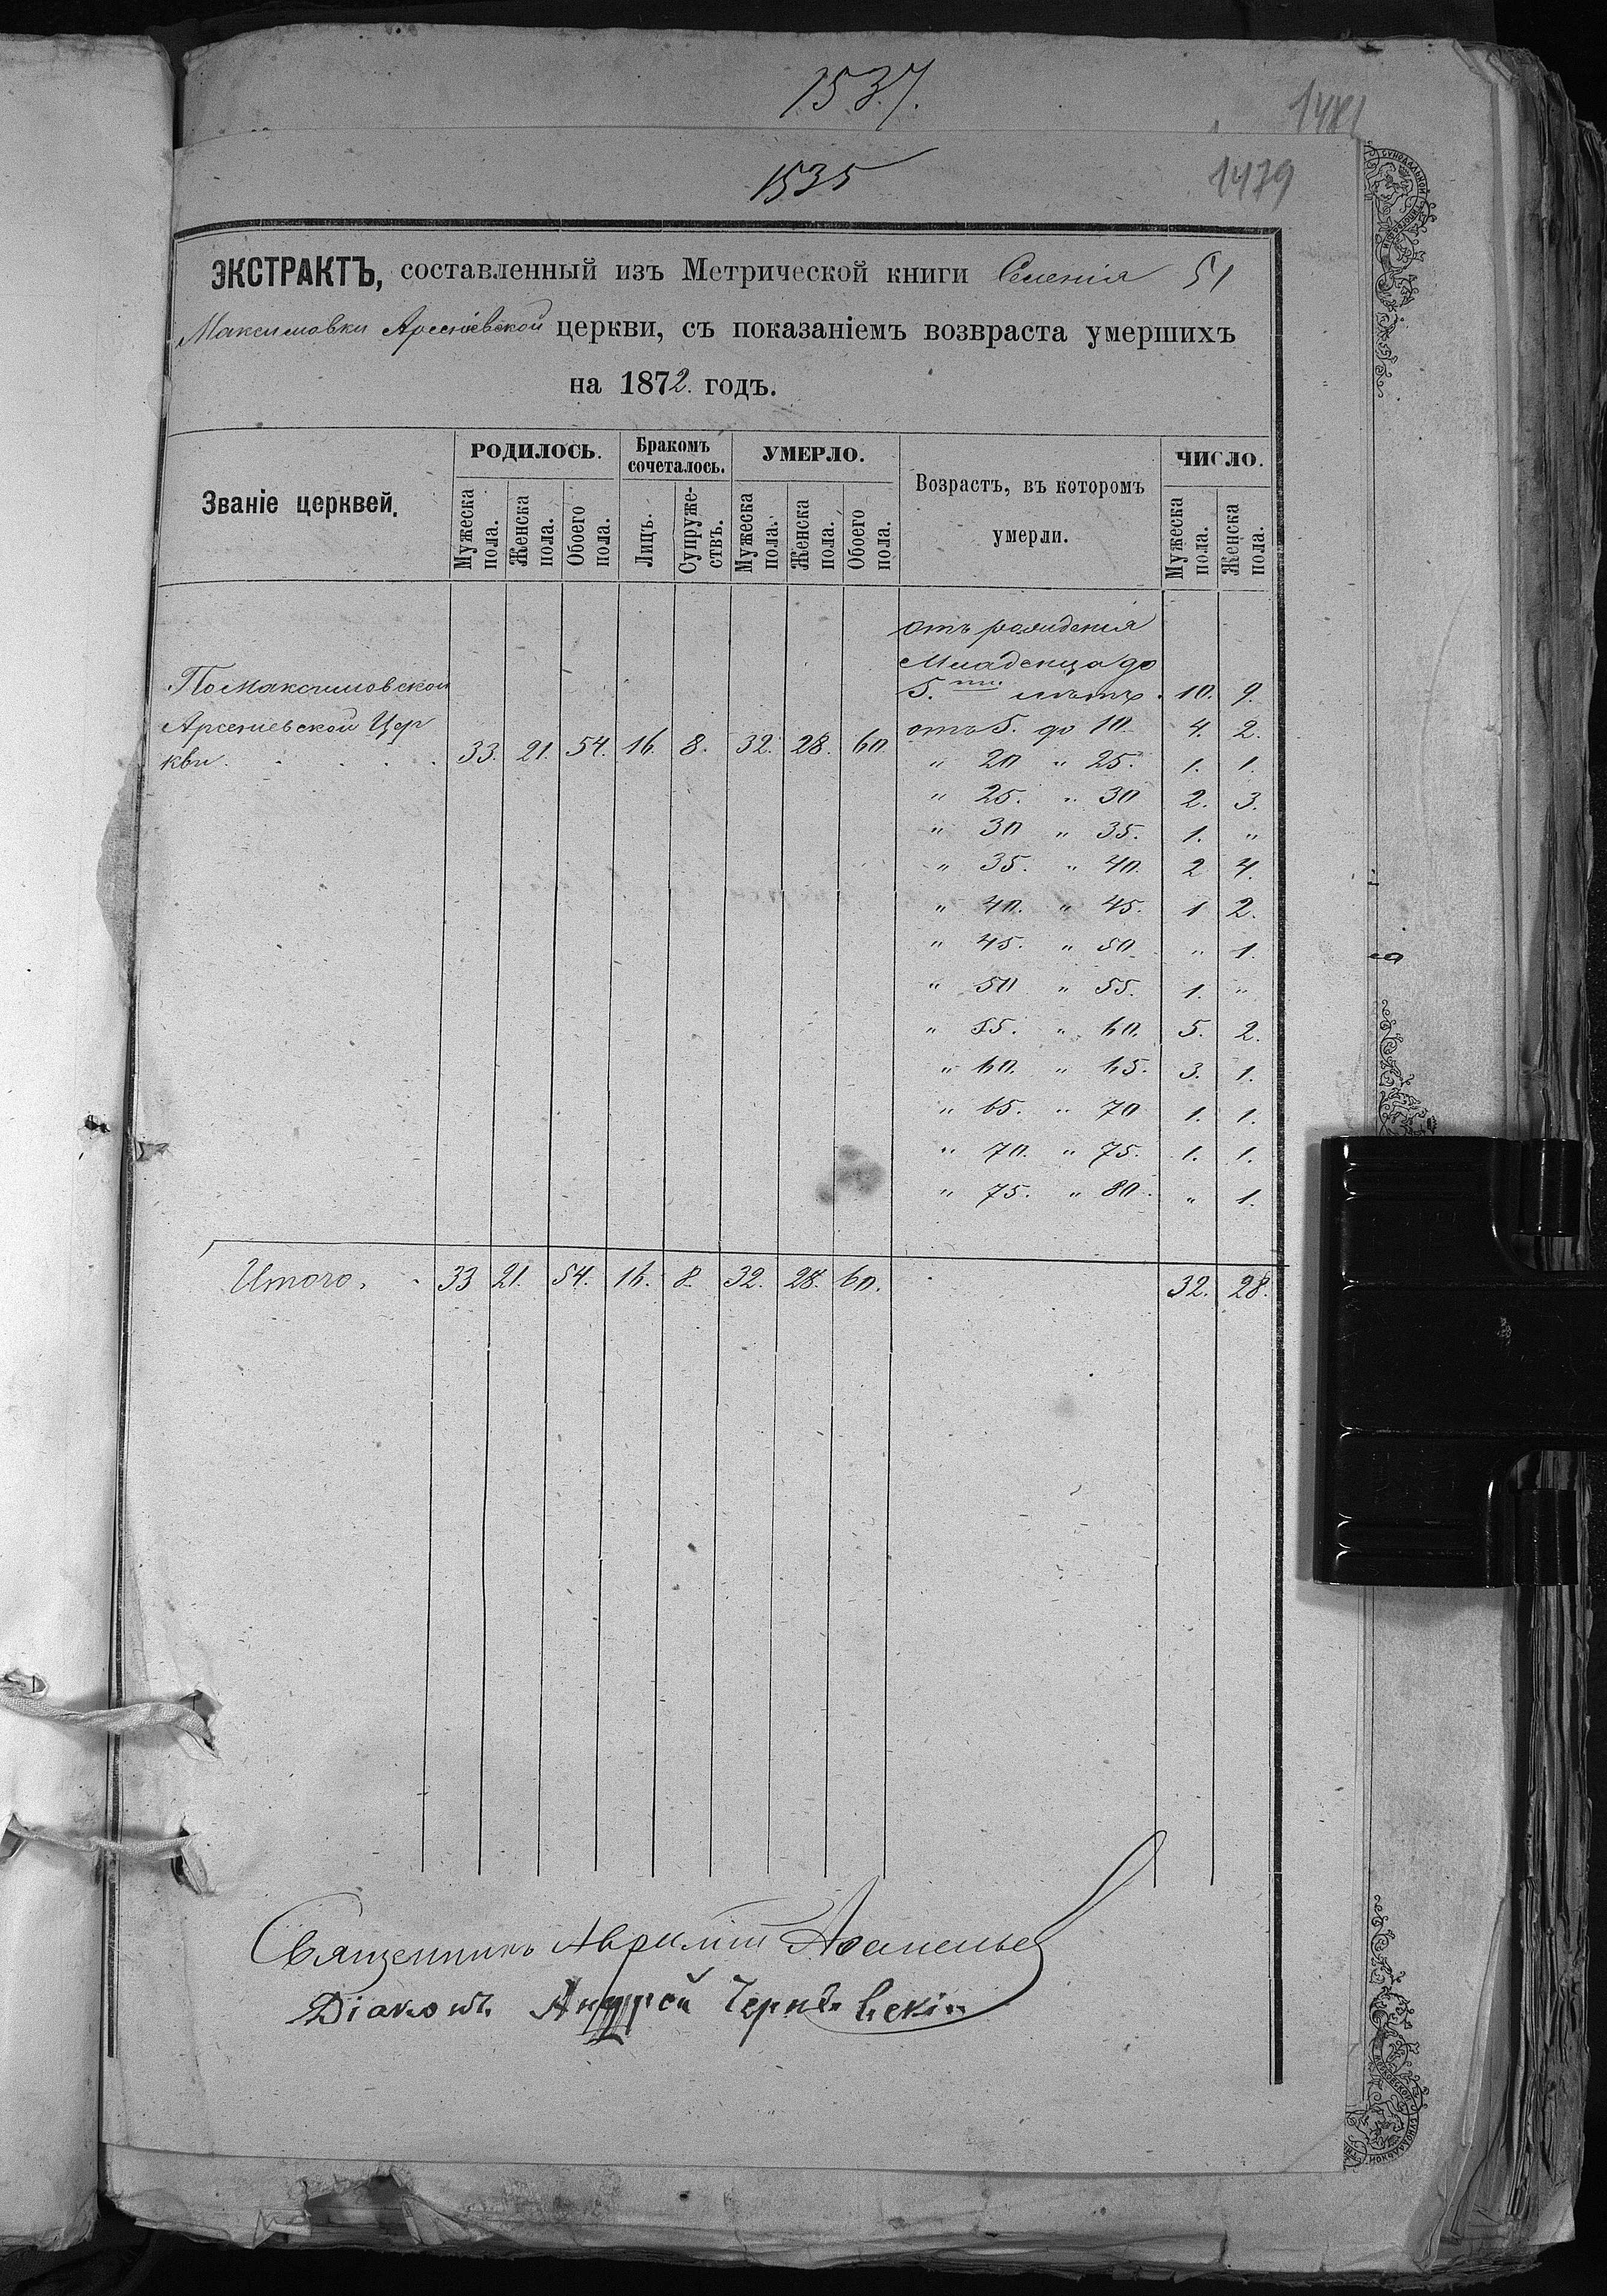 1537.
1481
1535
1479
ЭКСТРАКТЪ, составленный изъ Метрической книги Селенія 51
Максимовки Арсеніевской церкви, съ показаніемъ возвраста умершихъ
на 1872. годъ.
Званіе церквей.
РОДИЛОСЬ.
Бракомъ сочеталось.
УМЕРЛО.
Возрастъ, въ которомъ умерли.
ЧИСЛО.
Мужеска пола.
Женска пола.
Обоего пола.
Лицъ.
Супружествъ.
Мужеска пола.
Женска пола.
Обоего пола.
Мужеска пола.
Женска пола.
отъ рожденія
Младенца до
По Максимовской 5.ти лѣтъ. 10. 9.
Арсеніевской Цер отъ 5. до 10. 4. 2.
кви. 33. 21. 54. 16. 8. 32. 28. 60. " 20 " 25. 1. 1.
" 25. " 30 2. 3.
" 30 " 35. 1. "
" 35. " 40. 2 4.
" 40. " 45. 1 2.
" 45. " 50. " 1.
" 50 " 55. 1. "
" 55. " 60. 5. 2.
" 60. " 65. 3. 1.
" 65. " 70 1. 1.
" 70. " 75. 1. 1.
" 75. " 80. " 1.
Итого. 33 21. 54. 16. 8. 32. 28. 60. 32. 28.
Священникъ
Діаконъ Андрей
СУНОДАЛЬНОЙ
МОСКОВСКОЙ СУНОДАЛЬНОЙ